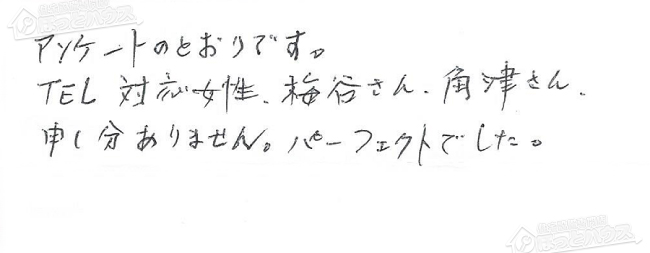 アンケートのとおりです。
TEL 対応女性、梅谷さん、角津さん、
申し分ありません。パーフェクトでした。